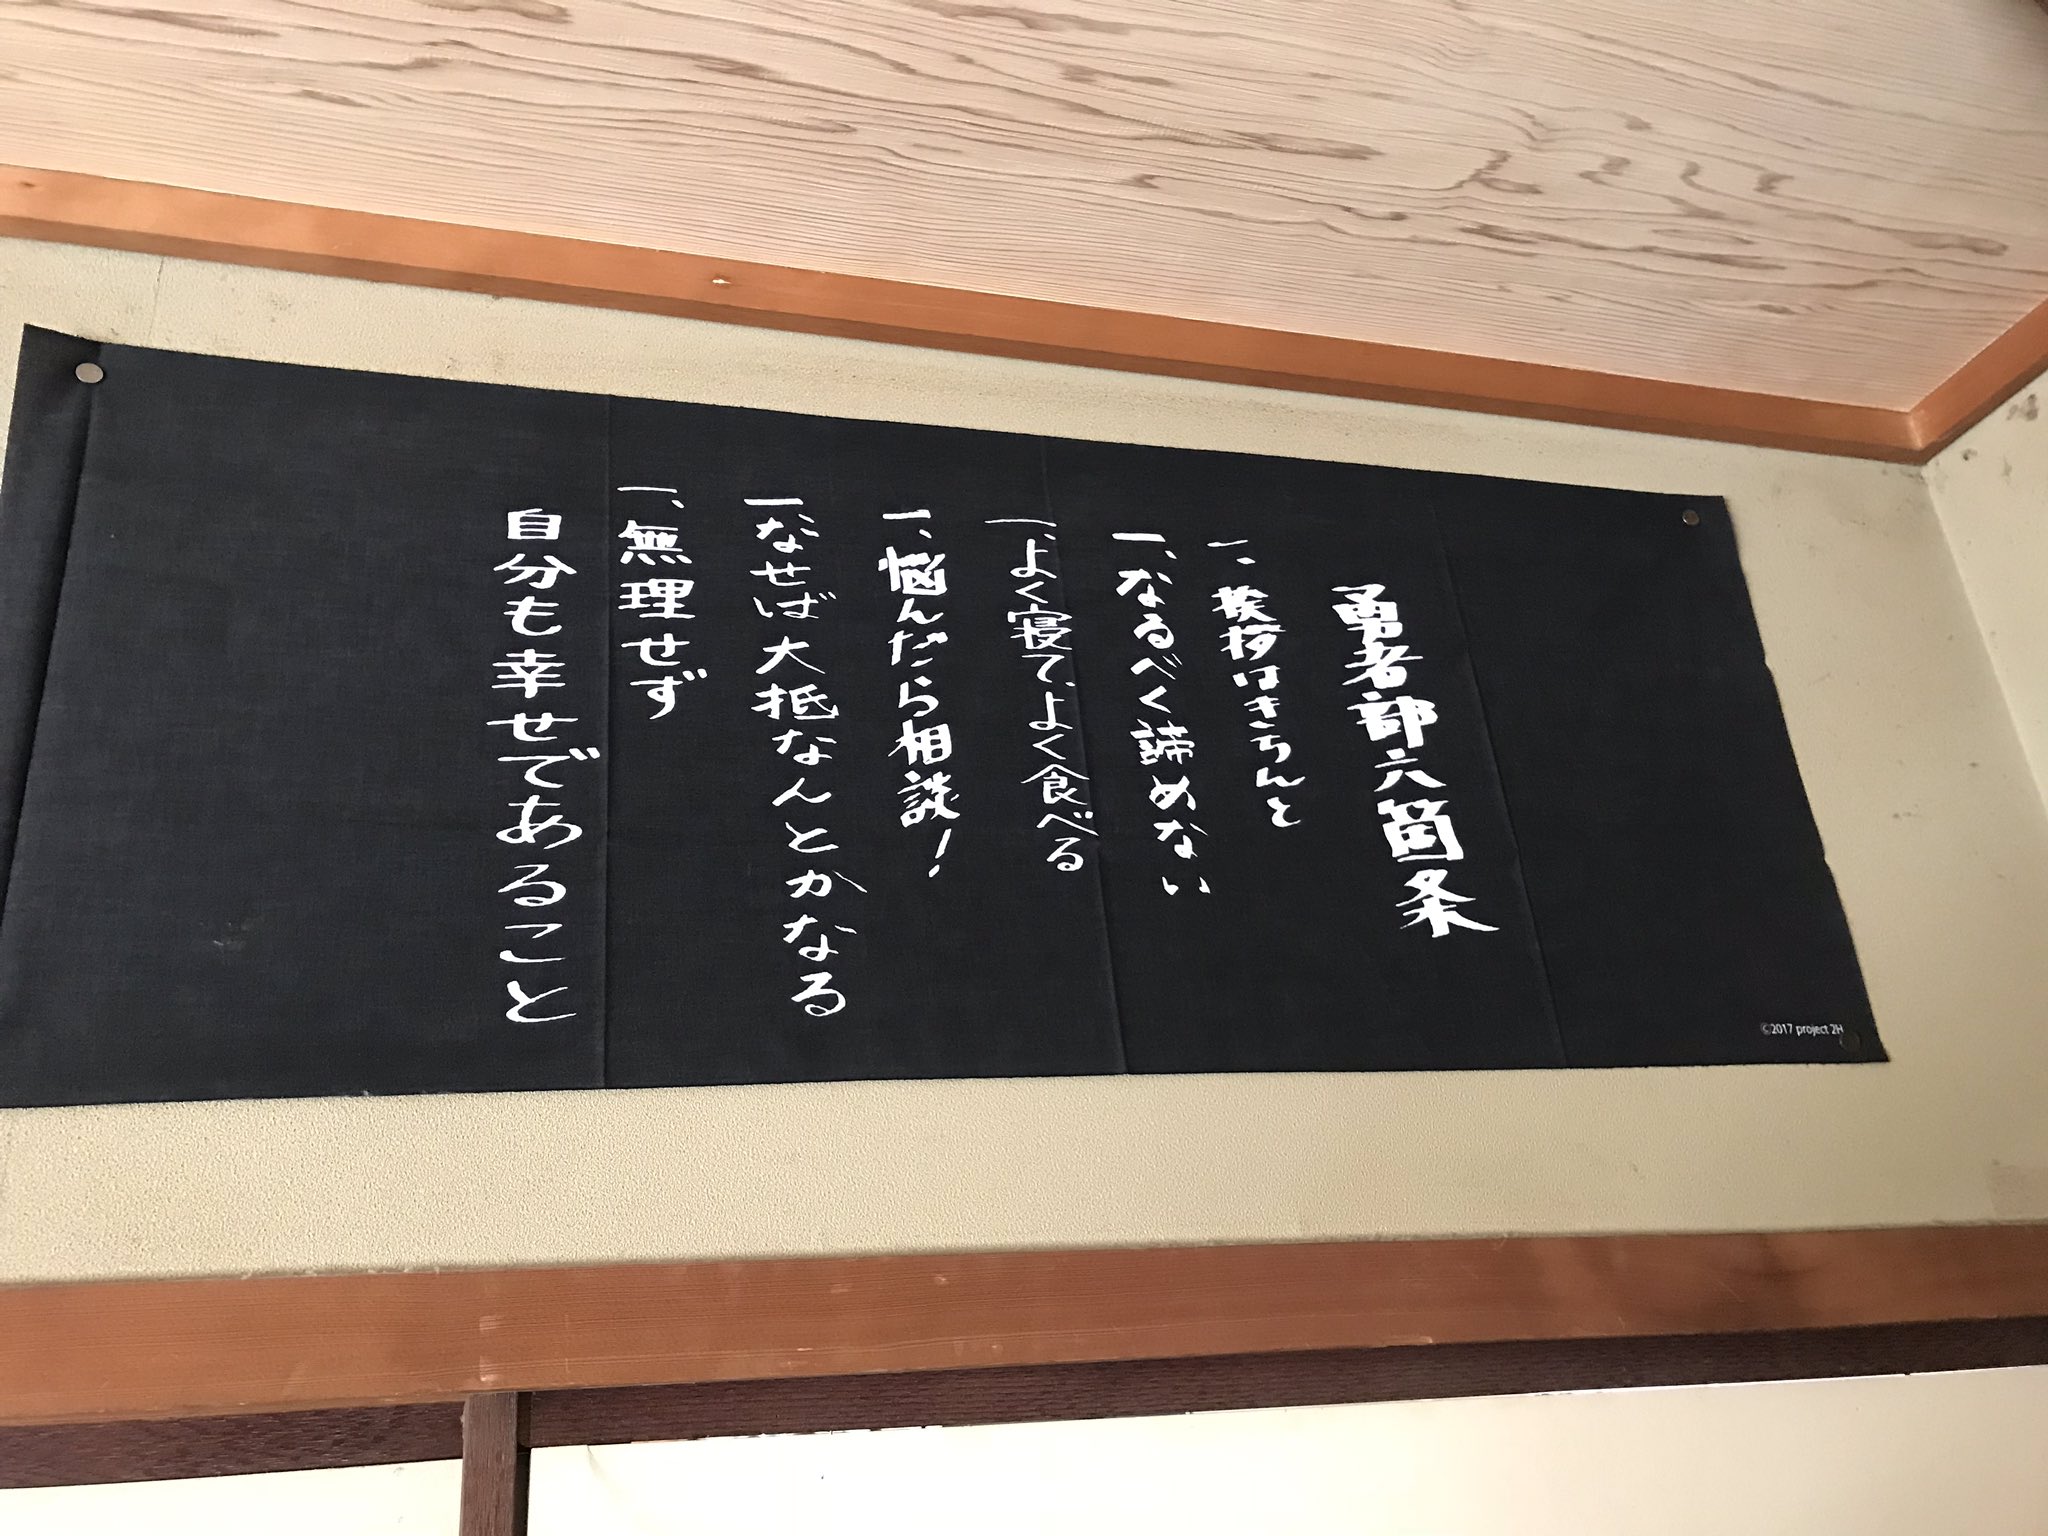 勇者部六箇条
一、挨拶はきちんと
一、なるべく諦めない
一、よく寝て、よく食べる
一、悩んだら相談！
一、なせば大抵なんとかなる
一、無理せず
自分も幸せであること
©2017 project 2H